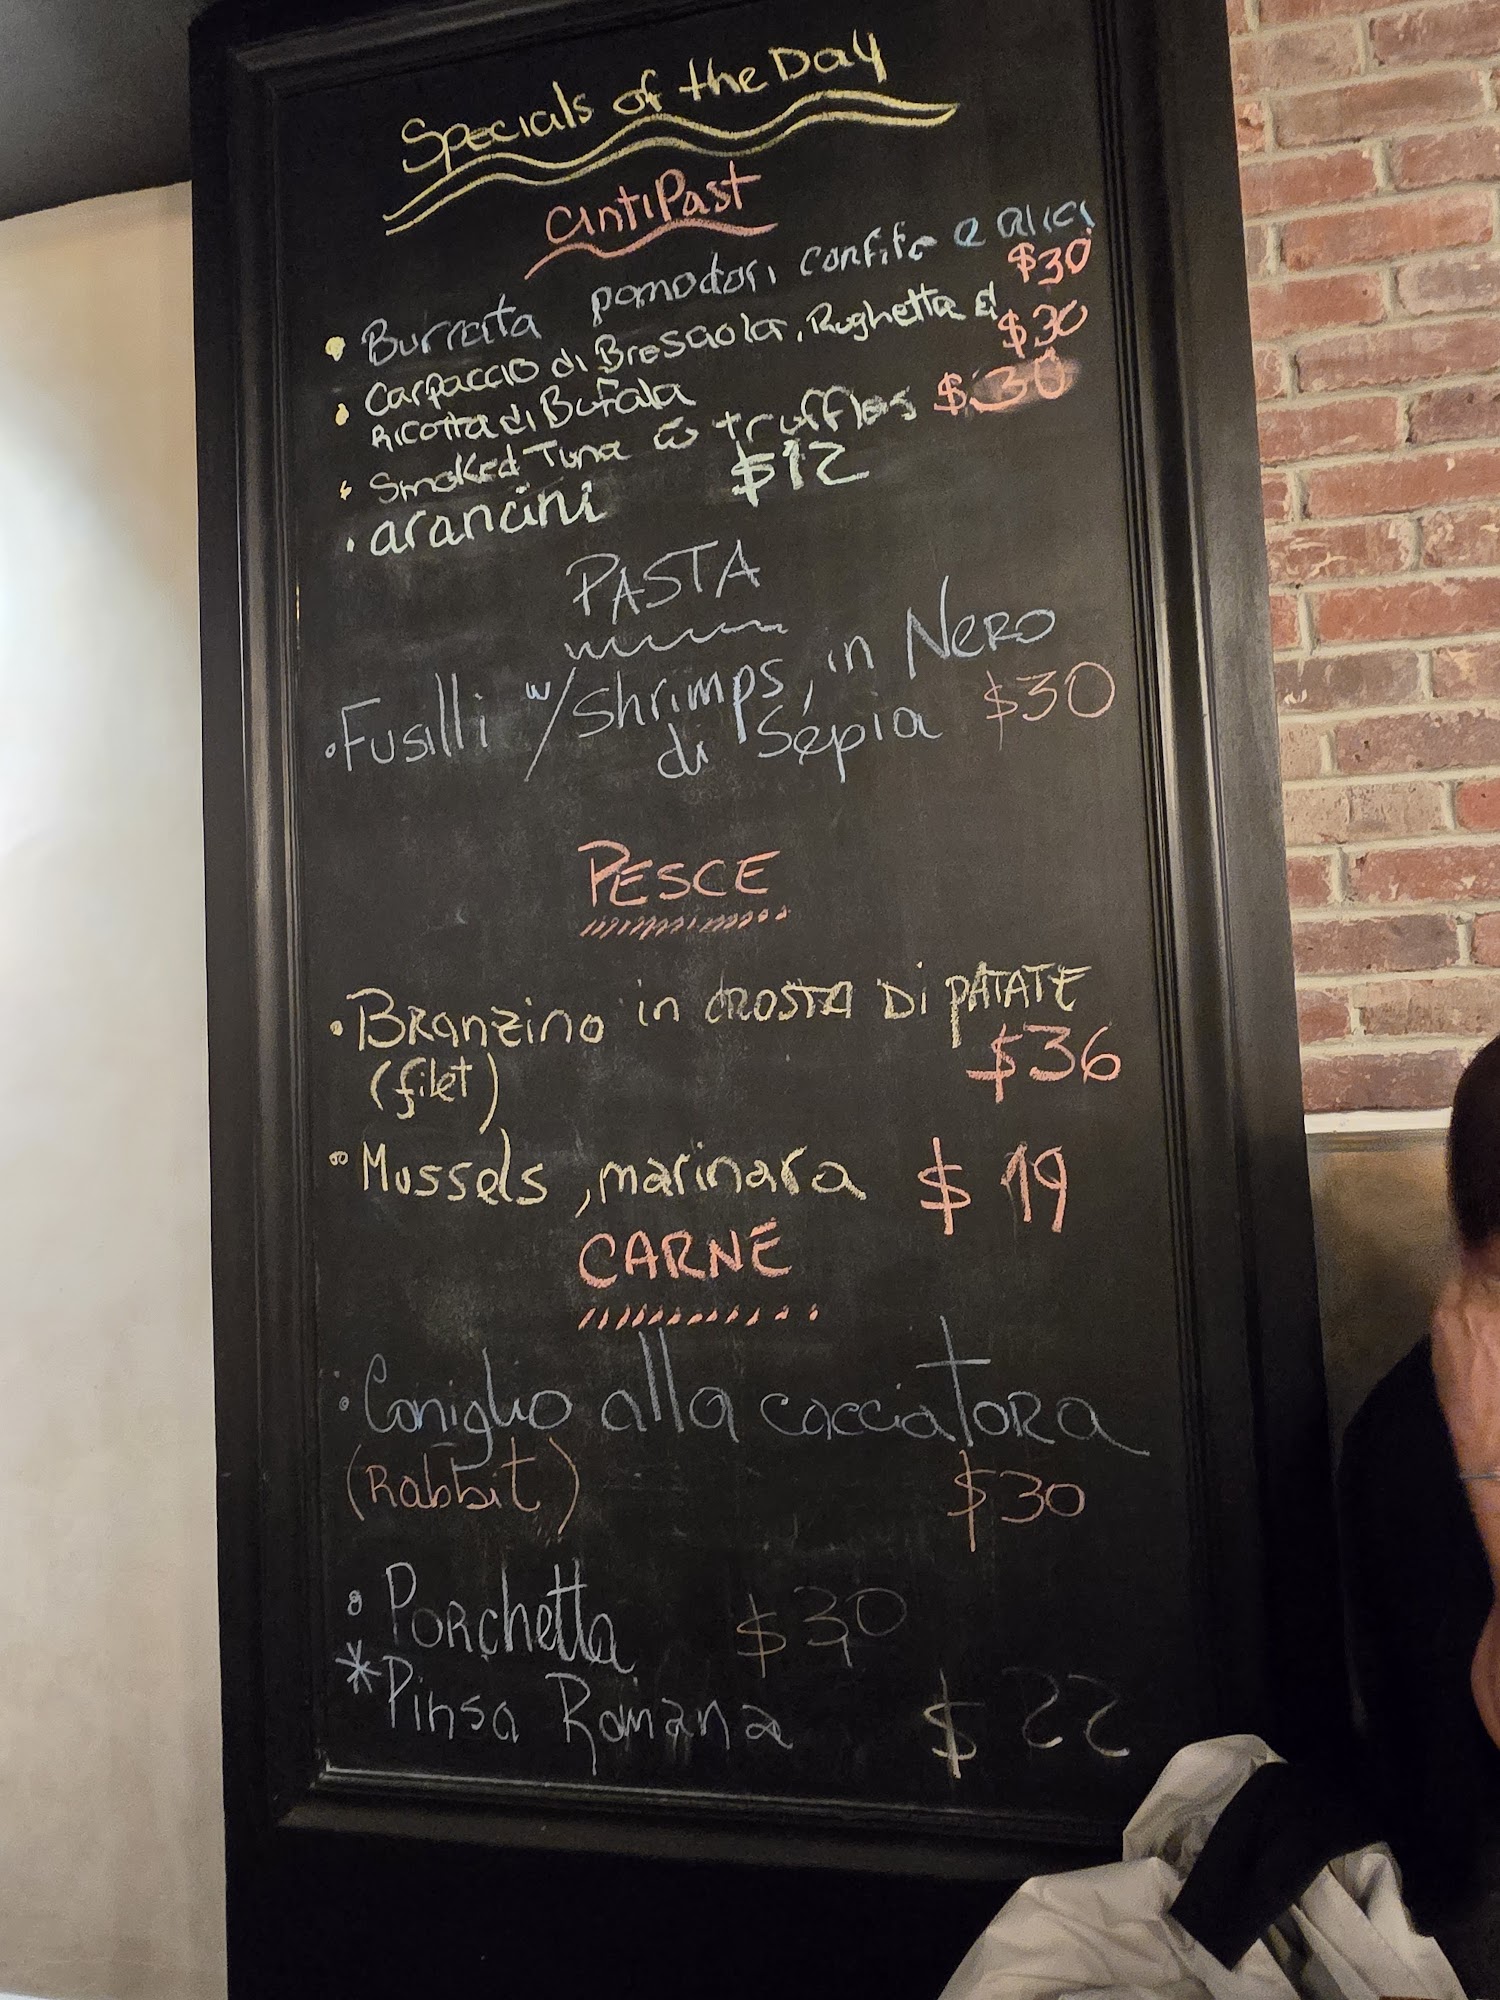 Specials of the Day
antiPast
• Burrata pomodori confite e alici
$30
• Carpaccio di Bresaola, Rughetta d $30
Ricotta di Bufala
• Smoked Tuna w truffles $30
• arancini $12
PASTA
• Fusilli w/shrimps, in NERO
di Sepia $30
PESCE
• BRanzino in CROSTA Di PATATE
(filet) $36
• Mussels, marinara $19
CARNE
• Coniglio alla cacciatORa
(Rabbit) $30
• PORchetta $30
*Pinsa Romana $22